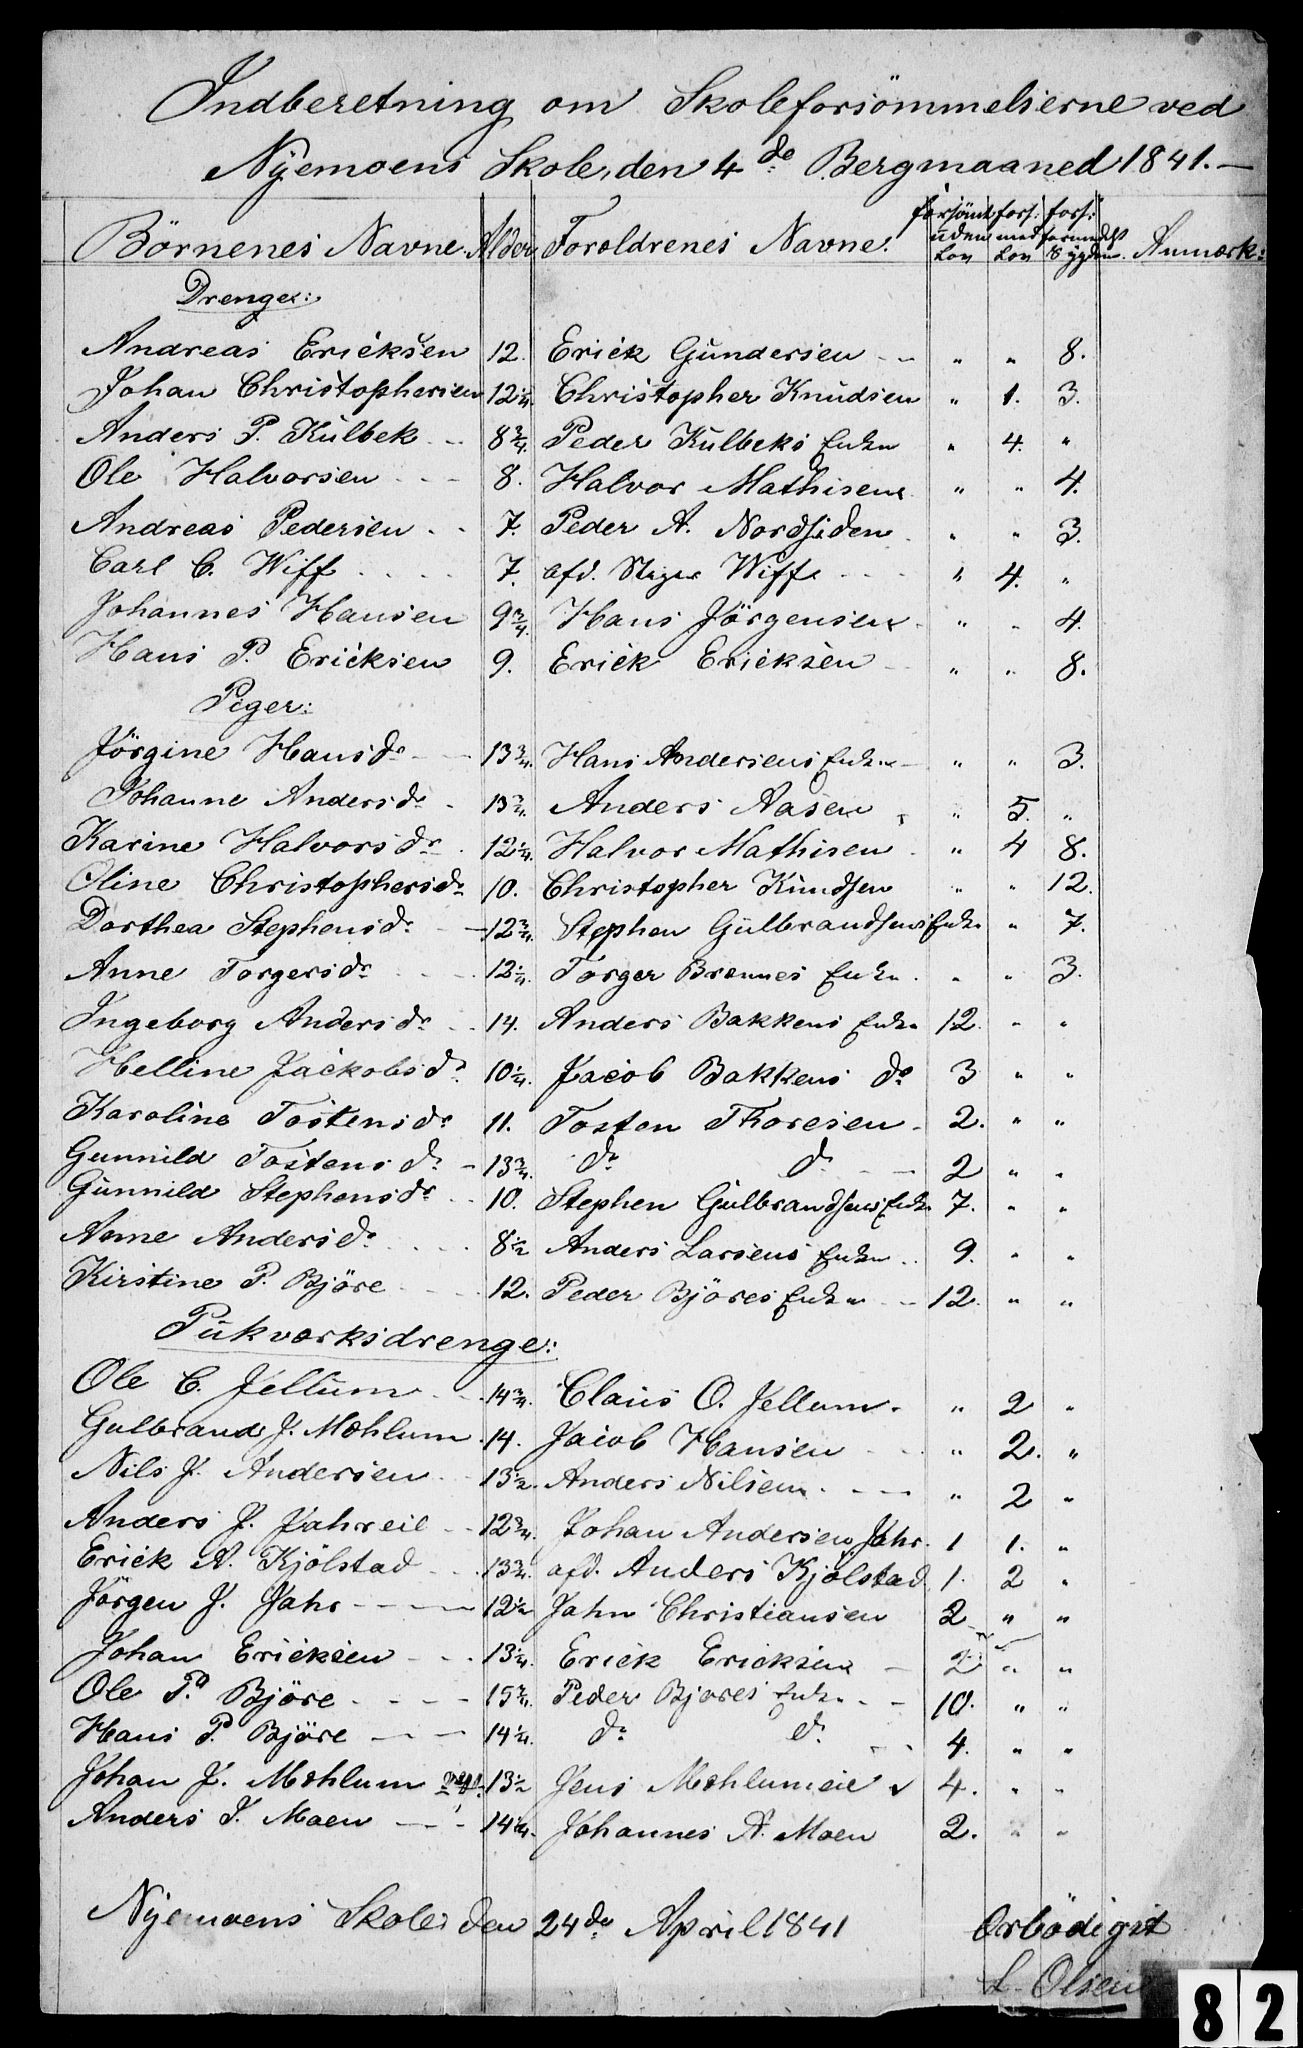 Indberetning om Skoleforsömmelserne ved
Nyemoens Skole, den 4de Bergmaaned 1841. —
Börnenes Navne. Alder Forældrenes Navne. forsömt uden Lov fors: med Lov fors: formedelst Sygdom. Anmærk:
Drenge:
Andreas Ericksen 12. Erick Gundersen - - " " 8.
Johan Christophersen 12 1/4. Christopher Knudsen " 1. 3.
Anders P. Kulbek - - 8 3/4. Peder Kulbeks Enke " 4. "
Ole Halvorsen - - - 8. Halvor Mathisen " " 4.
Andreas Pedersen - - 7. Peder A. Nordsiden " " 3.
Carl C. Wiff - - - - 7. afd. Wiff - - - " 4. "
Johannes Hansen 9 3/4. Hans Jörgensen - " " 4.
Hans P. Ericksen 9. Erick Ericksen - - " " 8.
Piger:
Jörgine Hansdr - - 13 3/4. Hans Andersens Enke - " " 3.
Johanne Andersdr - 13 3/4. Anders Aasen " 5. "
Karine Halvorsdr - 12 1/4. Halvor Mathisen - " 4 8.
Oline Christophersdr 10. Christopher Knudsen " " 12.
Dorthea Stephensdr - - 12 3/4. Stephen Gulbrandsens Enke " 7.
Anne Torgersdr - - - 12 1/4. Torger Brennes Enke - " " 3.
Ingeborg Andersdr - - 14. Anders Bakkens Enke 12. " "
Helline Jackobsdr 10 1/4. Jacob Bakkens do 3 " "
Karoline Tostensdr 11. Tosten Thoresen - 2. " "
Gunnild Tostensdr - 13 3/4. do do - - 2 " "
Gunnild Stephensdr - - 10. Stephen Gulbrandsens Enke 7. " "
Anne Andersdr - - - 8 1/2 Anders Larsens Enke - - 9. " "
Kirstine P. Björe - - - 12. Peder Björes Enke - - 12. " "
Pukværksdrenge:
Ole C. Jellum - - 14 3/4. Claus O. Jellum - " 2 "
Gulbrand J. Mæhlum - 14. Jacob Hansen - - - " 2. "
Nils J. Andersen - - 13 1/2. Anders Nilsen - - - " 2 "
Anders J. Jahreie - - 12 3/4. Johan Andersen Jahr. 1 1. "
Erick A. Kjölstad - - 13 3/4. afd. Anders Kjölstad 1. 2 "
Jörgen J. Jahr - - - 12 1/2 Jahn Christiansen 2 " "
Johan Ericksen - - - 13 1/4. Erick Ericksen - 2 " "
Ole P. Björe - - - - 15 3/4. Peder Björes Enke - - 10. " "
Hans P. Björe - - - 14 1/4. do do - - 4. " "
Johan J. Mæhlum 13 1/2 Jens Mæhlumeie 4. " "
Anders J. Moen - - - 14 1/4. Johannes A. Moen 2. " "
Nyemoens Skole, den 24de April 1841
Ærbödigst
L. Olsen
82